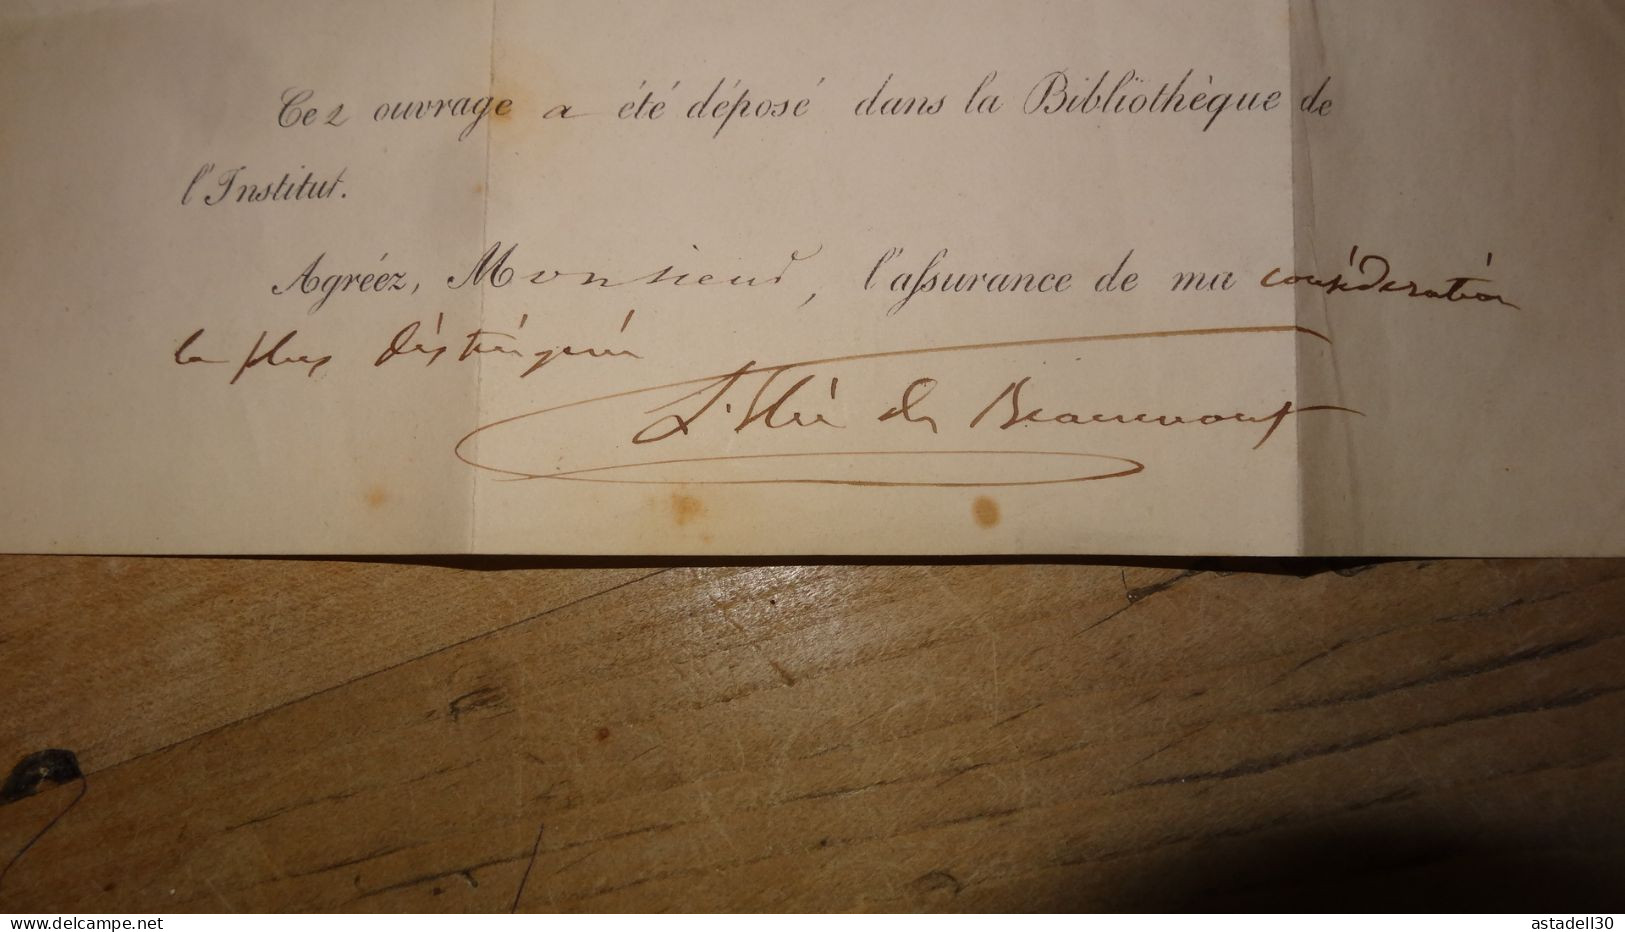 Cet ouvrage a été déposé dans la Bibliothèque de
l'Institut.
Agréez, Monsieur, l'assurance de ma considération
la plus distinguée
L. Élie de Beaumont
www.delcampe.net
astadell30